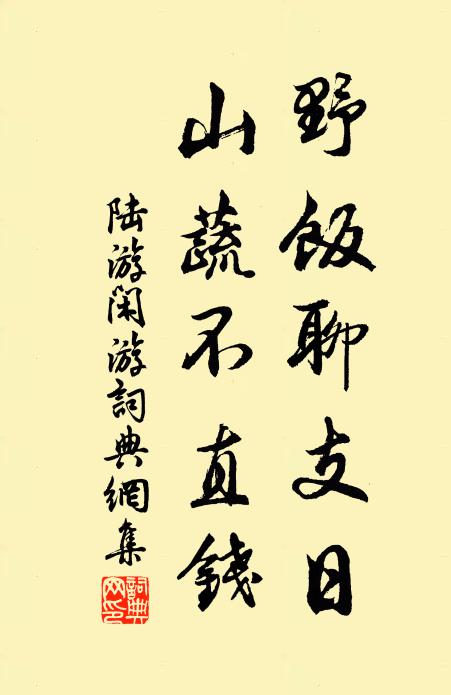 野飯聊支日
山蔬不直錢
陸游閑游詞典網集
詞典网印